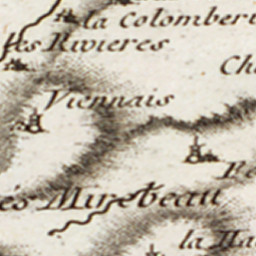 la Colomberi
les Rivieres
Ch
Viennais
Re
és Mirebeau
la Ha